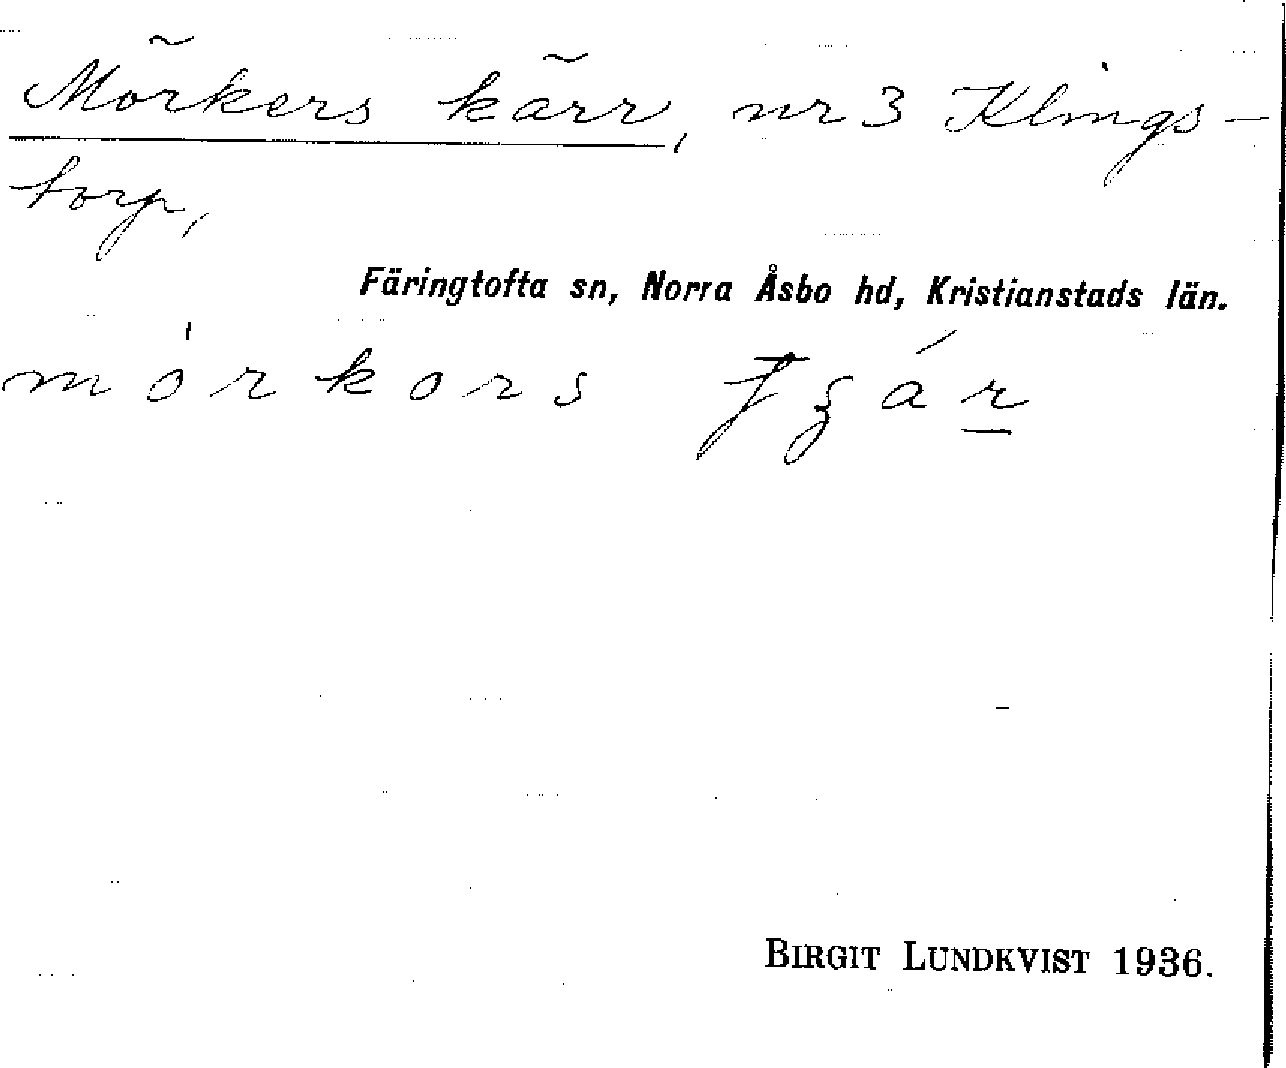 Mörkers kärr, nr 3 Klings-
torp,
Färingtofta sn, Norra Åsbo hd, Kristianstads län.
mòrkors
BIRGIT LUNDKVIST 1936.